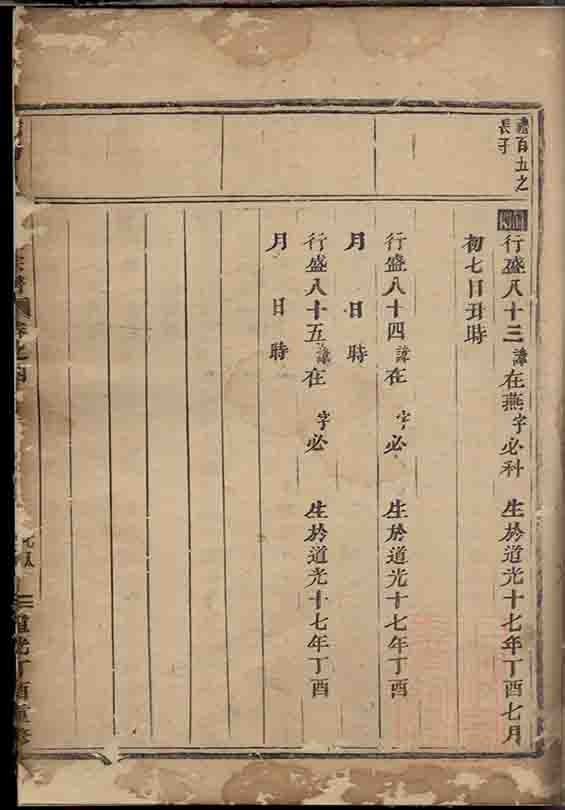 禮百五之
長子
行盛八十三諱在燕字必科　生於道光十七年丁酉七月
初七日丑時
行盛八十四諱在　字必　生於道光十七年丁酉
月　日時
行盛八十五諱在　字必　生於道光十七年丁酉
月　日時
道光丁酉重修